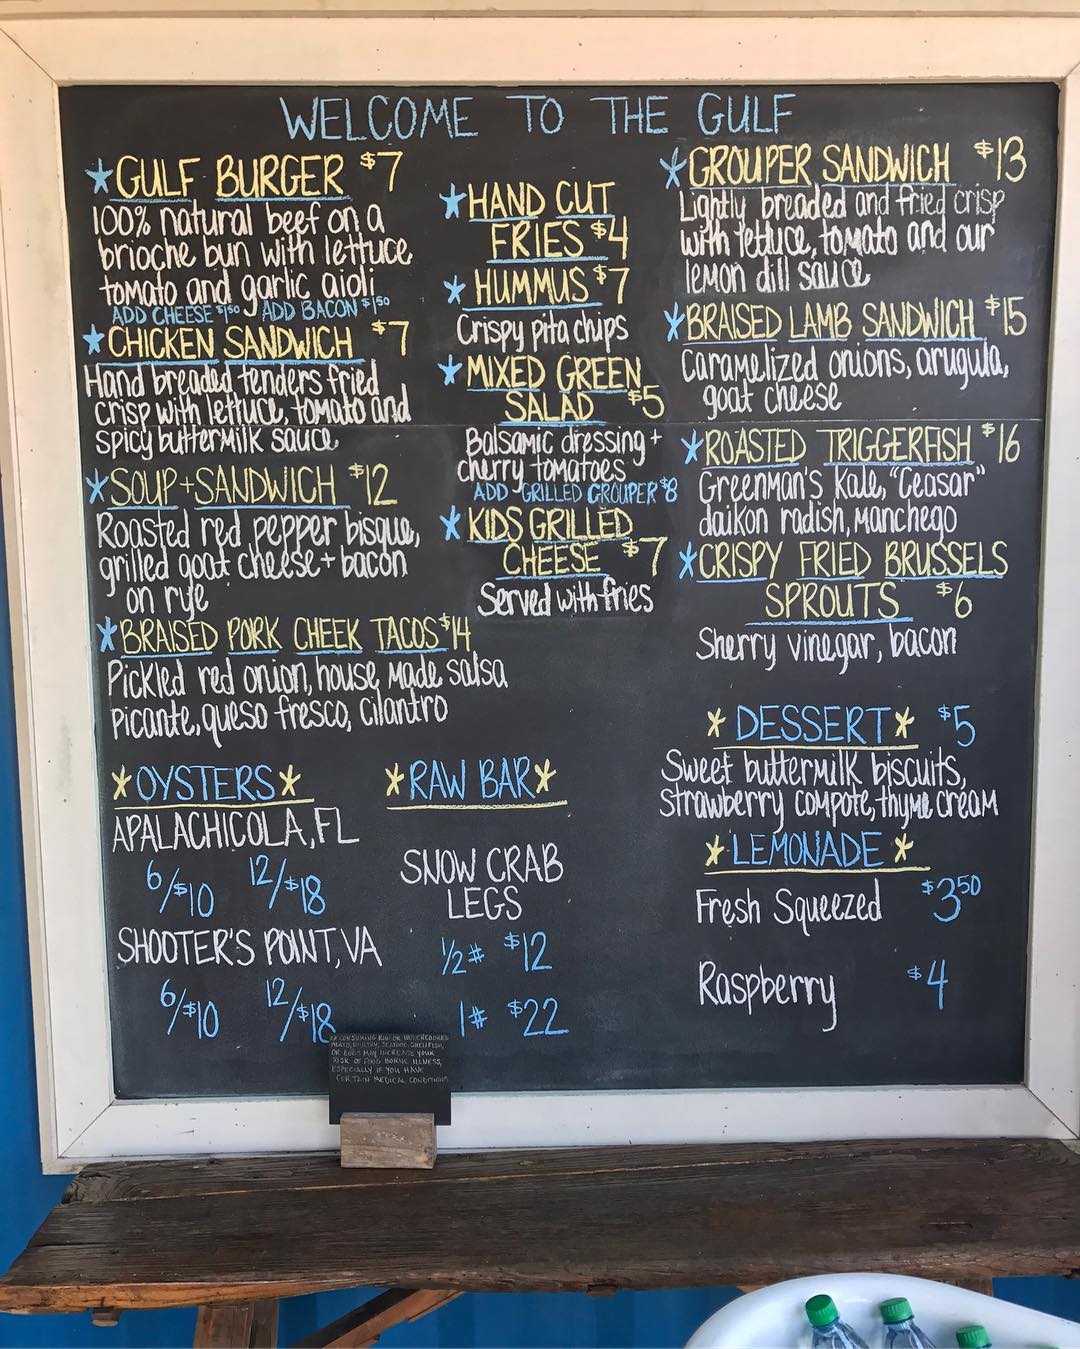 WELCOME TO THE GULF
*GULF BURGER $7
100% natural beef on a
brioche bun with lettuce
tomato and garlic aioli
ADD CHEESE $1.50 ADD BACON $1.50
*CHICKEN SANDWICH $7
Hand breaded tenders fried
crisp with lettuce, tomato and
spicy buttermilk sauce
*SOUP+SANDWICH $12
Roasted red pepper bisque,
grilled goat cheese + bacon
on rye
*BRAISED PORK CHEEK TACOS $14
Pickled red onion, house made salsa
picante, queso fresco, cilantro
*HAND CUT
FRIES $4
*HUMMUS $7
Crispy pita chips
*MIXED GREEN
SALAD $5
Balsamic dressing +
cherry tomatoes
ADD GRILLED GROUPER $8
*KIDS GRILLED
CHEESE $7
Served with fries
*GROUPER SANDWICH $13
Lightly breaded and fried crisp
with lettuce, tomato and our
lemon dill sauce
*BRAISED LAMB SANDWICH $15
Caramelized onions, arugula,
goat cheese
*ROASTED TRIGGERFISH $16
Greenman's Kale, "Ceasar"
daikon radish, Manchego
*CRISPY FRIED BRUSSELS
SPROUTS $6
Sherry vinegar, bacon
*OYSTERS*
APALACHICOLA, FL
6/$10 12/$18
SHOOTER'S POINT, VA
6/$10 12/$18
*RAW BAR*
SNOW CRAB
LEGS
1/2# $12
1# $22
*DESSERT* $5
Sweet buttermilk biscuits,
strawberry compote, thyme cream
*LEMONADE*
Fresh Squeezed $3.50
Raspberry $4
CONSUMING RAW OR UNDERCOOKED
MEATS, POULTRY, SEAFOOD, SHELLFISH,
OR EGGS MAY INCREASE YOUR
RISK OF FOOD BORNE ILLNESS,
ESPECIALLY IF YOU HAVE
CERTAIN MEDICAL CONDITIONS